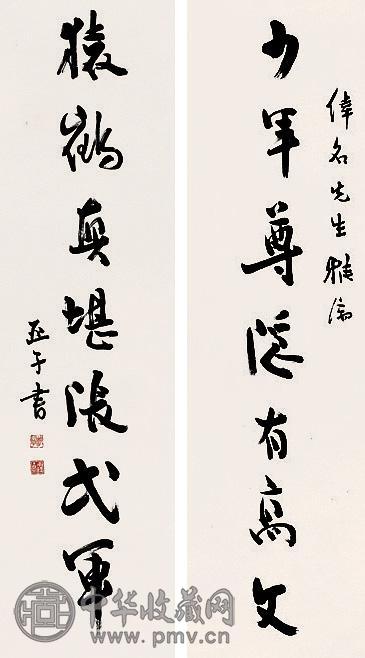 偉名先生雅屬
少年尊隱有高文
猿鶴真堪張弌軍
亞子書
中华收藏网
www.pmv.cn